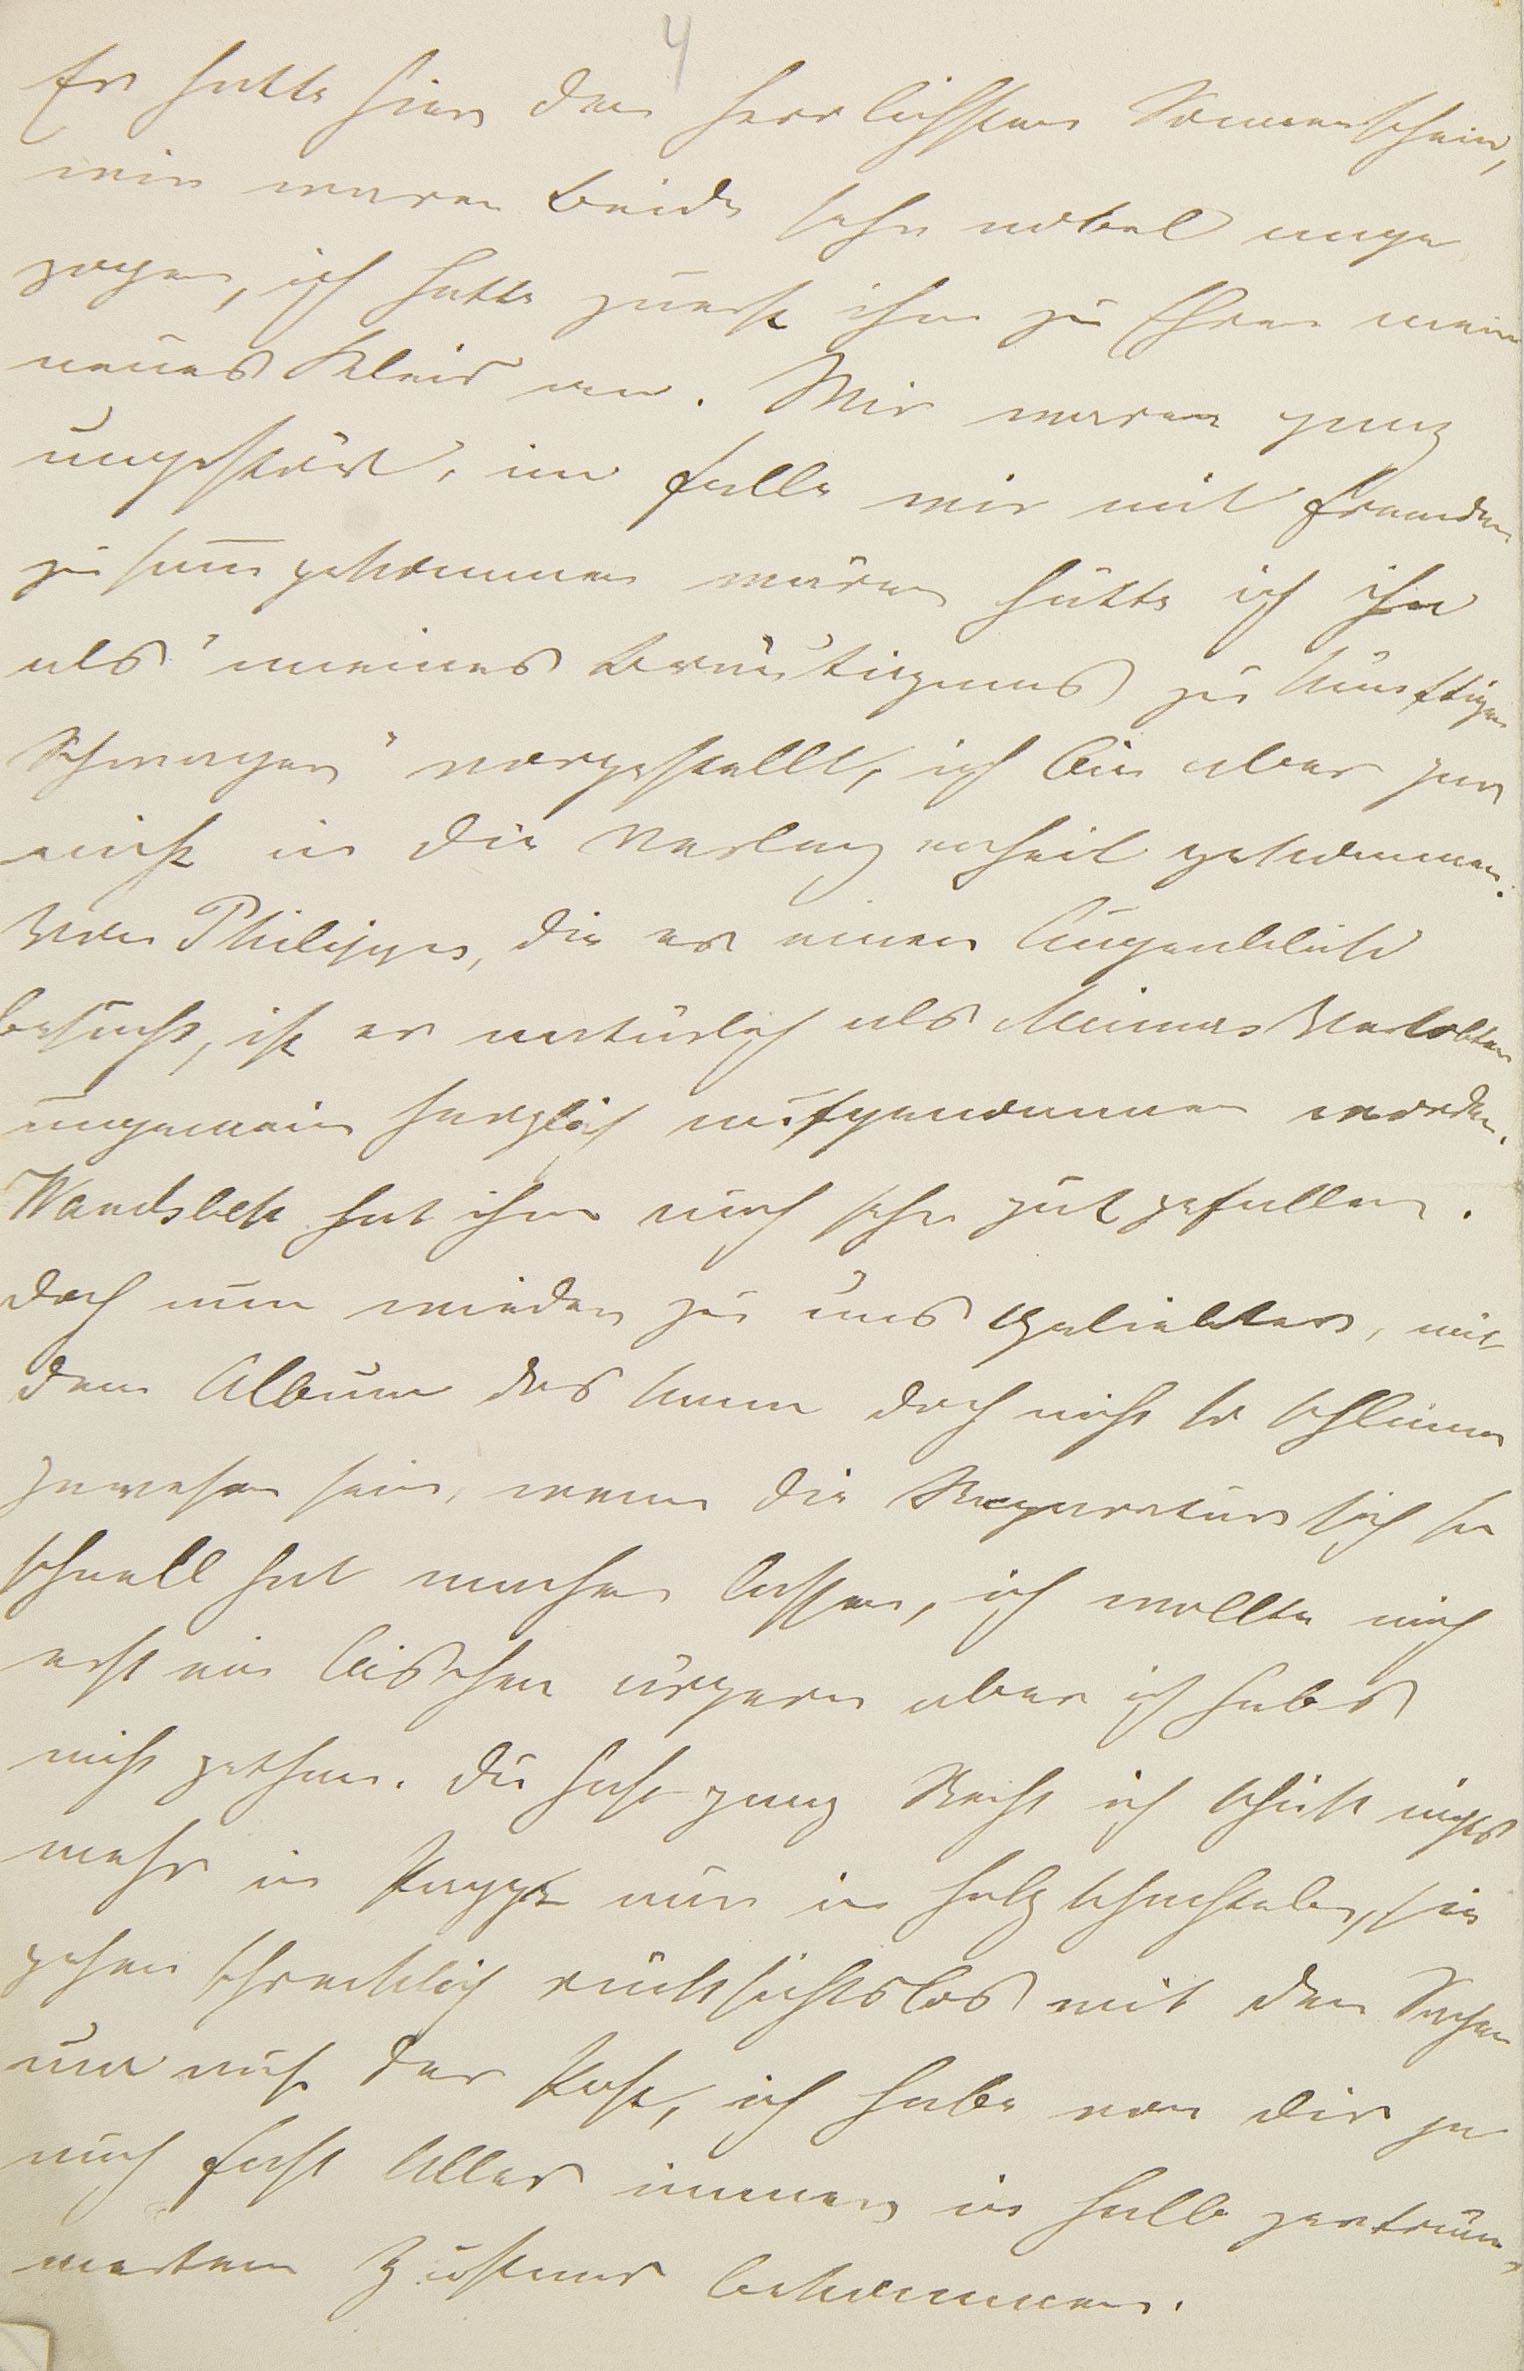 4
Er hatte hier den herrlichsten Sonnenschein,
wir waren beide sehr nobel ange
zogen, ich hatte zuerst ihm zu Ehren mein
neues Kleid an. Wir waren ganz
ungestört, im falle wir mit fremden
zusam̅gekommen wären hätte ich ihn
als "meines Bräutigams zukünftigen
Schwager" vorgestellt, ich bin aber gar
nicht in die Verlegenheit gekommen.
Von Philipps, die er einen Augenblick
besucht, ist er natürlich als Minnas Verlobter
ungemein herzlich aufgenommen worden.
Wandsbek hat ihm auch sehr gut gefallen.
doch nun wieder zu uns Geliebter, mit
dem Album das kann doch nicht so schlimm
gewesen sein, wenn die Reparatur sich so
schnell hat machen lassen, ich wollte mich
erst ein bischen ärgern aber ich habs
nicht gethan. Du hast ganz Recht ich schick nichts
mehr in Pappe nur in Holzschachteln, sie
gehen schrecklich rücksichtslos mit den Sachen
um auf der Post, ich habe von dir ja
auch fast Alles immer in halb zertrüm-
mertem Zustand bekommen.